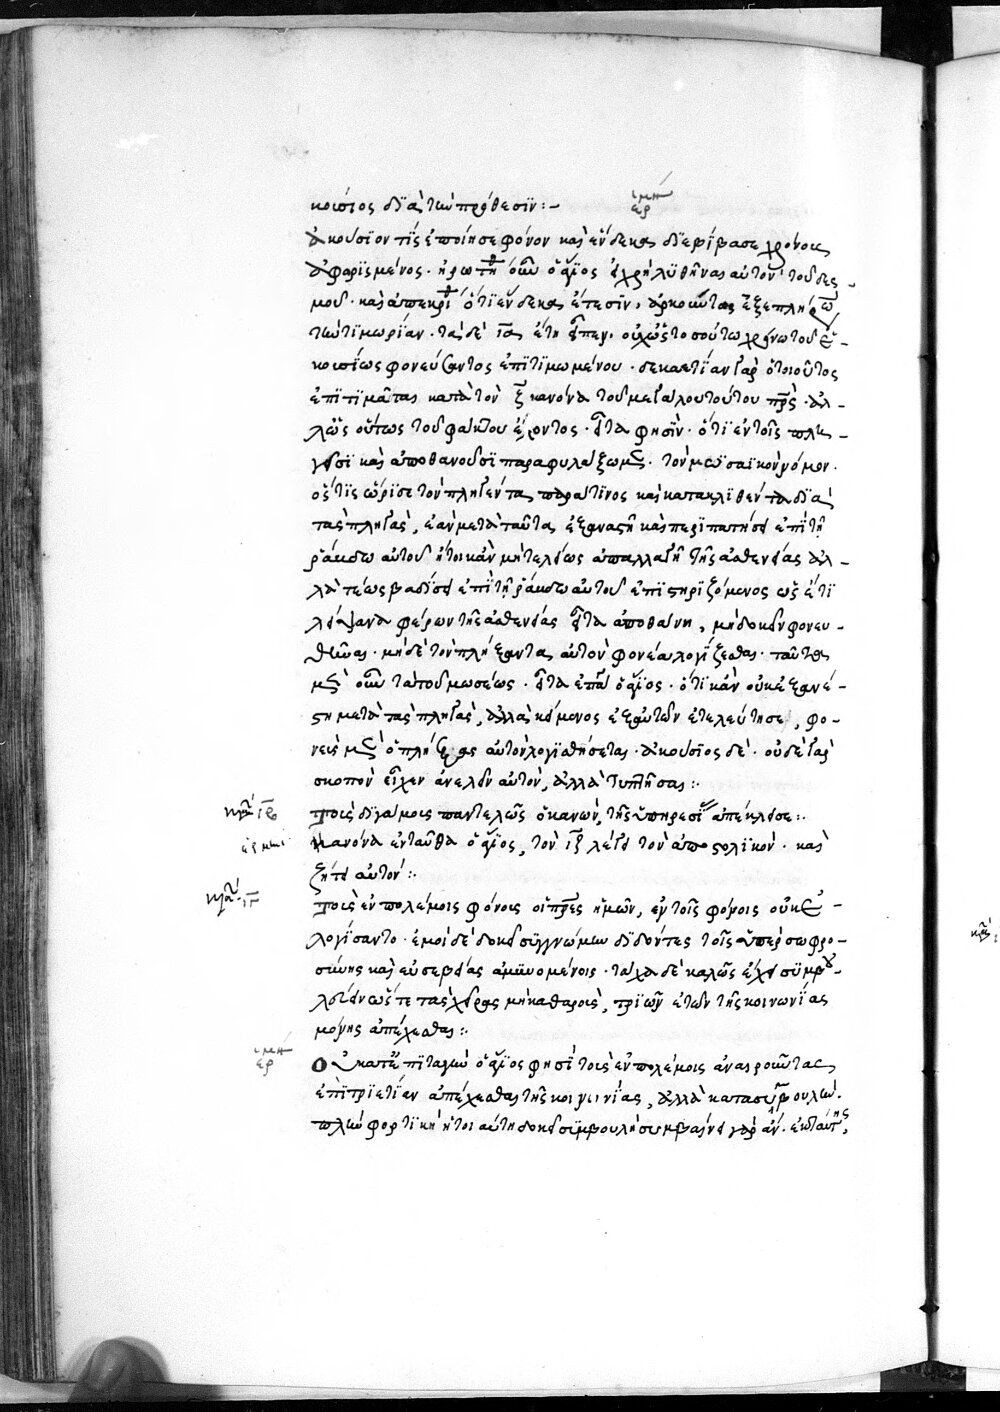 κούσιος διὰ τὴν πρόθεσιν:-
ἑρμη
ἀκούσιόν τις ἐποίησε φόνον καὶ ἕνδεκα διεβίβασε χρόνους
ἀφωρισμένος. ἠρωτήθη οὖν ὁ ἅγιος εἰ χρὴ λυθῆναι αὐτὸν τοῦ δεσ-
μοῦ. καὶ ἀπεκρίθη ὅτι ἕνδεκα ἔτεσιν, ἀρκούντως ἐξεπλήρω
τὴν τιμωρίαν. τὰ δὲ ια ἔτη εἶπεν, οὐχ ὡς τοσούτω χρόνω τοῦ ἀ-
κουσίως φονεύσαντος ἐπιτιμωμένου. δεκαετίαν γὰρ ὁ τοιοῦτος
ἐπιτιμᾶται κατὰ τὸν ξ κανόνα τοῦ μεγάλου τούτου πρς. ἀλ-
λ' ὡς οὕτως τοῦ φαίκτου ἔχοντος. εἶτα φησὶν. ὅτι ἐν τοῖς πλη-
γεῖσι καὶ ἀποθανοῦσι παραφυλάξωμεν. τὸν μωσαϊκὸν νόμον.
ὅστις ὥρισε τὸν πληγέντα παρά τινος καὶ κατακλιθέντα διὰ
τὰς πληγὰς, ἐὰν μετὰ ταῦτα ἐξαναστῆ καὶ περιπατήσει ἐπὶ τῆ
ῥάβδω αὐτοῦ ἤτοι κἂν μὴ τελείως ἀπαλλαγῆ τῆς ἀσθενείας ἀλ-
λὰ τέως βαδίσει ἐπὶ τῆ ῥάβδω αὐτοῦ ἐπιστηριζόμενος ὡς ἔτι
λείψανα φέρων τῆς ἀσθενείας εἶτα ἀποθάνη, μὴ δοκεῖν φονευ-
θῆναι. μηδὲ τὸν πλήξαντα αὐτὸν φονέα λογίζεσθαι. ταῦτα
μὲν οὖν τὰ τοῦ μωσέως. εἶτα ἐπάγει ὁ ἅγιος. ὅτι κἂν οὐκ ἐξανέ-
στη μετὰ τὰς πληγὰς, ἀλλὰ κείμενος ἐξ αὐτῶν ἐτελεύτησε, φο-
νεὺς μὲν ὁ πλήξας αὐτὸν λογισθήσεται. ἀκούσιος δὲ. οὐδὲ γὰρ
σκοπὸν εἶχεν ἀνελεῖν αὐτὸν, ἀλλὰ τυπτῆσαι:
κανὼν ιβ
τοὺς διγάμους παντελῶς ὁ κανὼν, τῆς ὑπηρεσίας ἀπέκλεισε:
ἑρμηνεία
κανόνα ἐνταῦθα ὁ ἅγιος, τὸν ιζ λέγει τὸν ἀποστολικὸν. καὶ
ζήτει αὐτὸν:
κανὼν ιγ
τοὺς ἐν πολέμοις φόνους οἱ πρες ἡμῶν, ἐν τοῖς φόνοις οὐκ ἐ-
λογίσαντο. ἐμοὶ δὲ δοκεῖ συγγνώμην διδόντες τοῖς ὑπὲρ σωφρο-
σύνης καὶ εὐσεβείας ἀμυνομένοις. τάχα δὲ καλῶς ἔχει συμβου-
λεύειν ὥστε τὰς χεῖρας μὴ καθαροὺς, τριῶν ἐτῶν τῆς κοινωνίας
μόνης ἀπέχεσθαι:
ἑρμη
οὐ κατ' ἐπιταγὴν ὁ ἅγιος φησὶ τοὺς ἐν πολέμοις ἀναιροῦντας
ἐπὶ τριετίαν ἀπέχεσθαι τῆς κοινωνίας, ἀλλὰ κατὰ συμβουλὴν.
πλὴν φορτικὴ ἤτοι αὕτη δοκεῖ συμβουλὴ συμβαίνει γὰρ ἂν. ἐκ ταύτης,